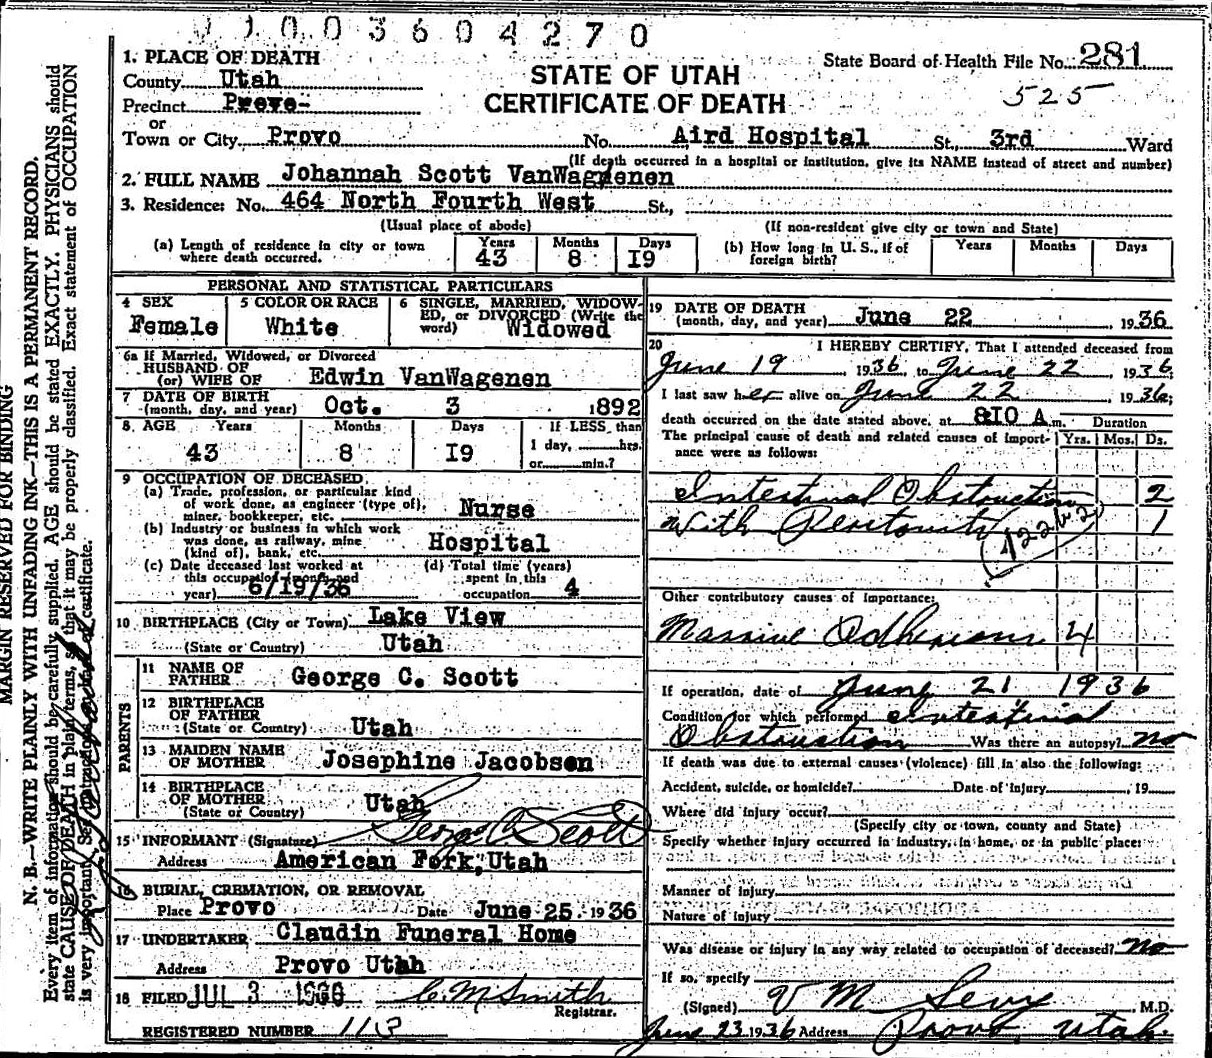 0 1 0 0 3 6 0 4 2 7 0
1. PLACE OF DEATH
County Utah
Precinct Provo
or
Town or City Provo
STATE OF UTAH
CERTIFICATE OF DEATH
State Board of Health File No. 281
525
No. Aird Hospital St., 3rd Ward
(If death occurred in a hospital or institution, give its NAME instead of street and number)
2. FULL NAME Johannah Scott VanWagenen
3. Residence: No. 464 North Fourth West St.,
(Usual place of abode)
(If non-resident give city or town and State)
(a) Length of residence in city or town where death occurred. Years 43 Months 8 Days I9
(b) How long in U. S., if of foreign birth? Years Months Days
PERSONAL AND STATISTICAL PARTICULARS
4 SEX Female
5 COLOR OR RACE White
6 SINGLE, MARRIED, WIDOWED, or DIVORCED (Write the word) Widowed
6a If Married, Widowed, or Divorced
HUSBAND OF
(or) WIFE OF Edwin VanWagenen
7 DATE OF BIRTH
(month, day, and year) Oct. 3 1892
8 AGE Years 43 Months 8 Days I9 If LESS than 1 day, hrs. or min.?
9 OCCUPATION OF DECEASED
(a) Trade, profession, or particular kind
of work done, as engineer (type of),
miner, bookkeeper, etc. Nurse
(b) Industry or business in which work
was done, as railway, mine
(kind of), bank, etc. Hospital
(c) Date deceased last worked at
this occupation (month and
year) 6/19/36
(d) Total time (years)
spent in this
occupation 4
10 BIRTHPLACE (City or Town) Lake View
(State or Country) Utah
PARENTS
11 NAME OF
FATHER George C. Scott
12 BIRTHPLACE
OF FATHER
(State or Country) Utah
13 MAIDEN NAME
OF MOTHER Josephine Jacobsen
14 BIRTHPLACE
OF MOTHER
(State or Country) Utah
15 INFORMANT (Signature) George C. Scott
Address American Fork, Utah
16 BURIAL, CREMATION, OR REMOVAL
Place Provo Date June 25 1936
17 UNDERTAKER Claudin Funeral Home
Address Provo Utah
18 FILED JUL 3 1936 C. M Smith
Registrar.
REGISTERED NUMBER 113
19 DATE OF DEATH
(month, day, and year) June 22, 1936
20 I HEREBY CERTIFY, That I attended deceased from
June 19, 1936, to June 22, 1936
I last saw her alive on June 22, 1936;
death occurred on the date stated above, at 810 A.m.
Duration
The principal cause of death and related causes of importance were as follows:
Yrs. Mos. Ds.
Intestinal Obstruction 2
With Peritonitis 1
Other contributory causes of importance:
Massive Adhesions 4
If operation, date of June 21 1936
Condition for which performed Intestinal
Obstruction Was there an autopsy? no
If death was due to external causes (violence) fill in also the following:
Accident, suicide, or homicide? Date of injury , 19
Where did injury occur?
(Specify city or town, county and State)
Specify whether injury occurred in industry, in home, or in public place:
Manner of injury
Nature of injury
Was disease or injury in any way related to occupation of deceased? no
If so, specify
(Signed) V M Sevy M.D.
June 23 1936 Address Provo, Utah.
MARGIN RESERVED FOR BINDING
N. B.—WRITE PLAINLY WITH UNFADING INK—THIS IS A PERMANENT RECORD.
Every item of information should be carefully supplied. AGE should be stated EXACTLY. PHYSICIANS should
state CAUSE OF DEATH in plain terms, so that it may be properly classified. Exact statement of OCCUPATION
is very important. certificate.